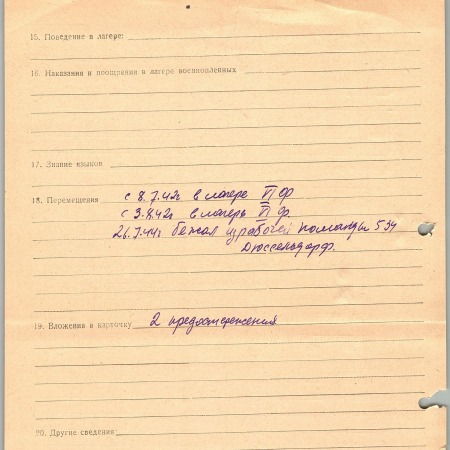 15. Поведение в лагере:
16. Наказания и поощрения в лагере военнопленных
17. Знание языков
18. Перемещения с 8.7.42г в лагере VI Ф
с 3.8.42г в лагерь VI Ф.
26.7.44г бежал из рабочей команды 534
Дюссельдорф.
19. Вложения в карточку 2 предостережения
20. Другие сведения: